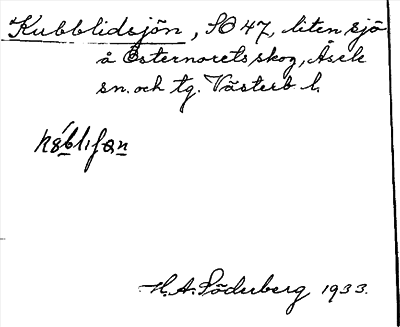 Kubblidsjön, SO 47, liten sjö
å Östernorets skog, Åsele
sn. och tg. Västerb l.
H. A. Söderberg 1933.